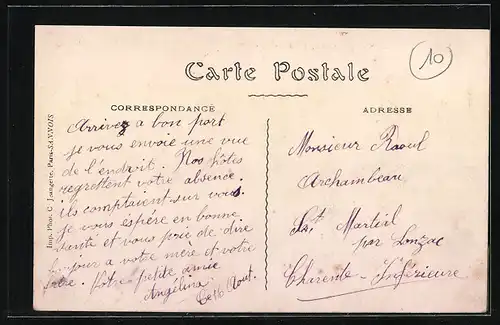 10
Carte Postale
CORRESPONDANCE
ADRESSE
Imp. Phot. C. Jeangette, Paris-SANNOIS
Arrivez a bon port
je vous envoie une vue
de l'endroit. Nos hôtes
regrettent votre absence.
ils comptaient sur vous.
je vous espère en bonne
santé et vous prie de dire
bonjour a votre mère et votre
frère. Votre petite amie
Angélina
Ce 16 Aout.
Monsieur Raoul
Archambeau
St Marteil
par Lonzac
Charente-Inférieure